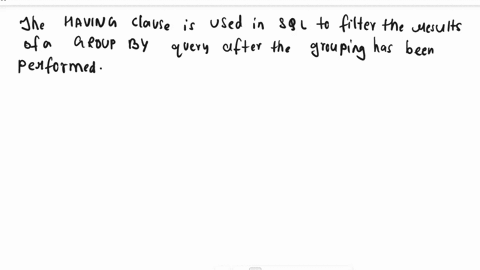 The HAVING clause is used in SQL to filter the results
of a GROUP BY query after the grouping has been
performed.